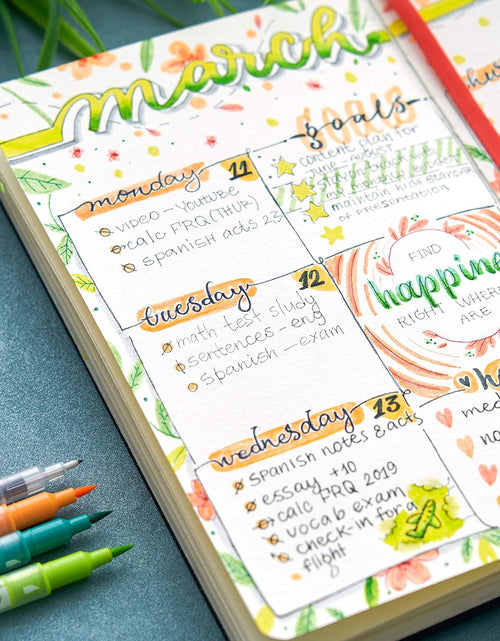 march
monday 11
video - YouTube
calc FRQ (THUR)
spanish acts 23
tuesday 12
math test study
sentences - eng
spanish - exam
wednesday 13
spanish notes & acts
essay +10
calc FRQ 2019
vocab exam
check-in for a
flight
goals
content plan for
June - August
maintain high standar
of presentation
FIND
happine
RIGHT WHERE
ARE
h
med
no